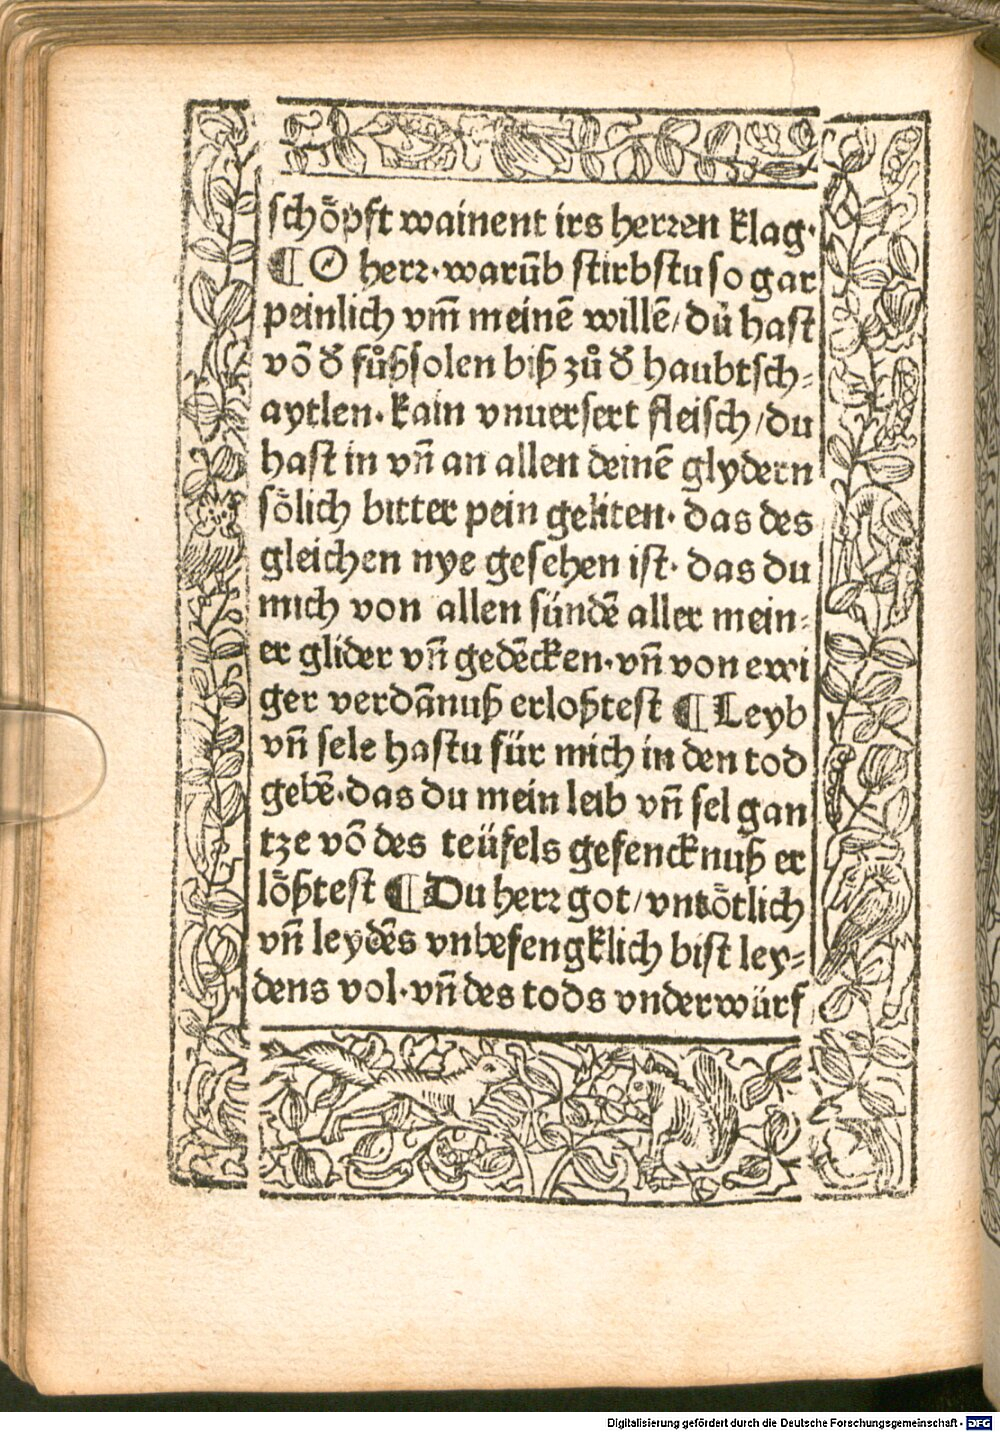 schöpft wainent irs herren klag·
¶ O herr·warūb stirbstu so gar
peinlich vm̄ meinē willē/dů hast
vō d̕ fůßsolen biß zů d̕ haubtsch⸗
aytlen·kain vnuersert fleisch/du
hast in vn̄ an allen deinē glydern
sölich bitter pein geliten·das des
gleichen nye gesehen ist·das du
mich von allen sündē aller mein⸗
er glider vn̄ gedēcken·vn̄ von ewi
ger verdānuß erloßtest ¶ Leyb
vn̄ sele hastu für mich in den tod
gebē·das du mein leib vn̄ sel gan
tze vō des teüfels gefencknuß er
lößtest ¶ Du herr got/vntötlich
vn̄ leydēs vnbefengklich bist ley⸗
dens vol·vn̄ des tods vnderwürf
Digitalisierung gefördert durch die Deutsche Forschungsgemeinschaft - DFG